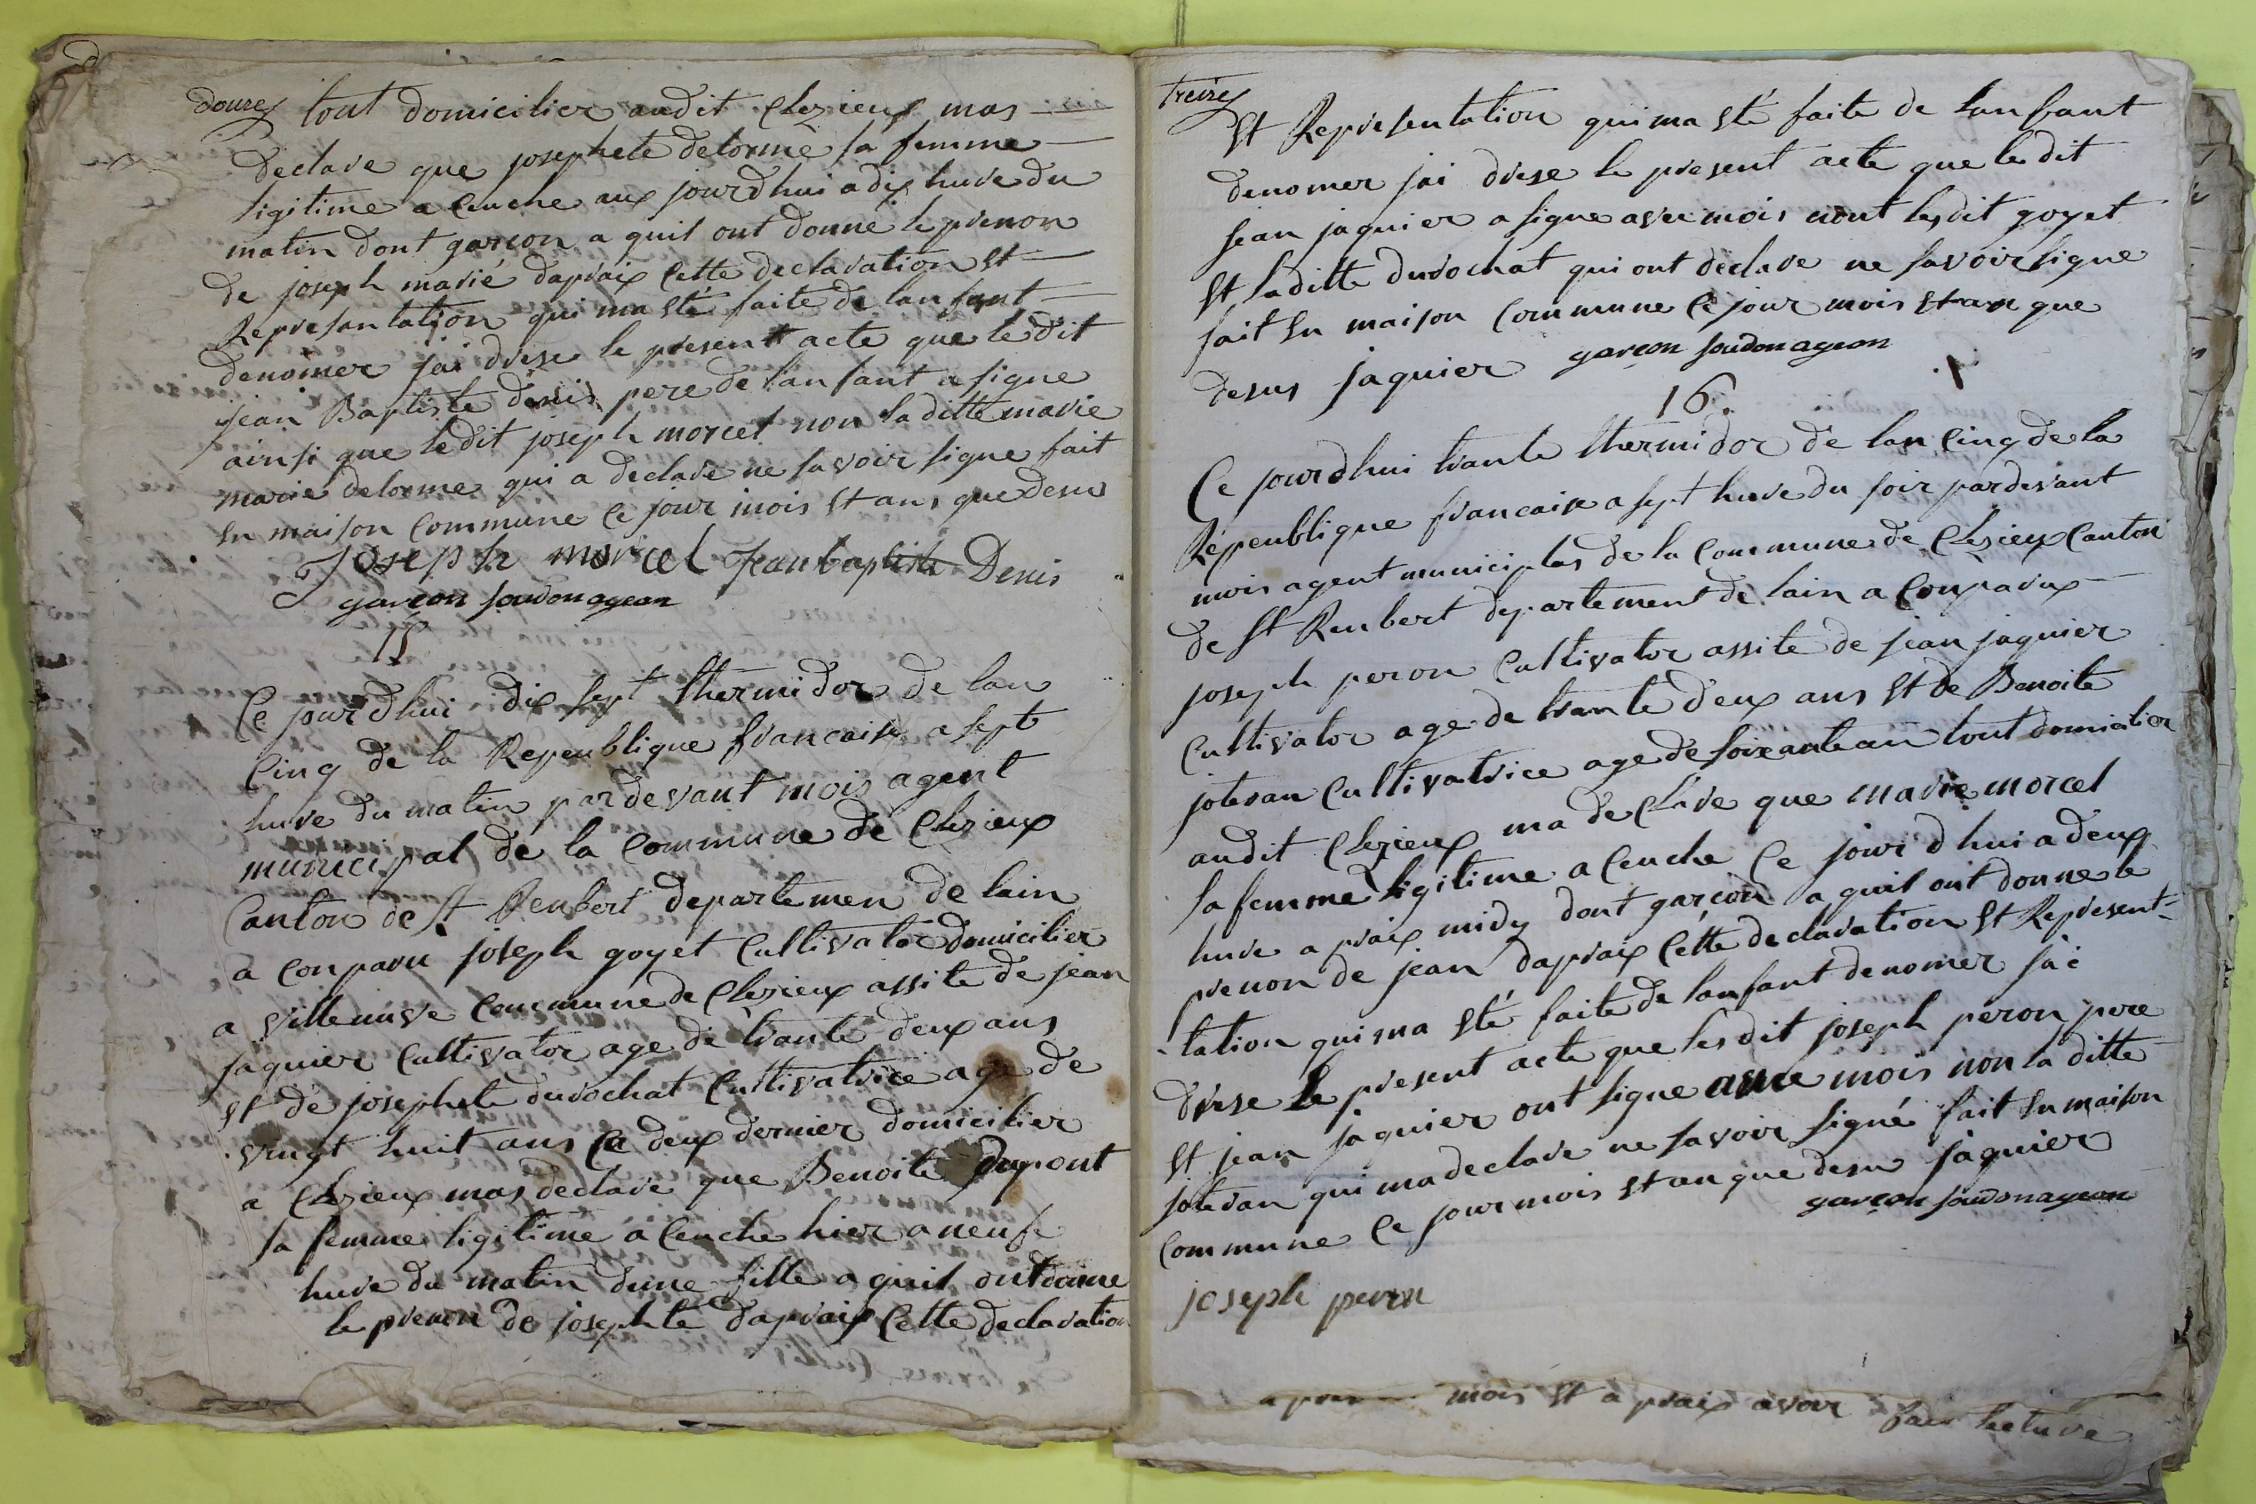 douze
tout domicilier audit Clezieux mas
declare que josephete delorme sa femme
ligitime a Ceuche aux jourdhui a dix hure du
matin dont garcon a quil ont donné le prenon
de joseph marié dapraix Cette declaration st
Represantation qui ma sté faite de lanfant
denomer jai drese le present acte que le dit
jean Baptiste denis pere de lanfant a signe
ainsi que ledit joseph morcel non la ditte marie
marie delorme qui a declare ne savoir signe fait
sn maison Commune Ce jour mois st ans que desu
Joseph morcel jean baptiste Denis
garcon soudonageon
15
Ce jourdhui dix sept thermidor de lan
Cinq de la Repeublique francaise a sept
hure du matin pardevant mois agent
municipal de la Commune de Clezieux
Canton de st Renbert departemen de lain
a conparu joseph goyet Cultivator domicilier
a villenuve Commune de Clezieux assite de jean
jaquier Cultivator age de trante deux ans
st de josephete durochat Cultivatrice age de
vingt huit ans Ce deux dernier domicilier
a Clezieux mas declare que Benoite dupont
sa femme ligitime a Ceuche hier a neufe
hure du matin dune fille a quil ont donne
le prenon de josephte dapraix Cette declaration
treize
st Representation qui ma sté faite de lanfant
denomer jai drese le present acte que le dit
jean jaquier a signe avec mois nont lesdit goyet
st laditte durochat qui ont declare ne savoir signe
fait sn maison Commune Ce jour mois st an que
desus jaquier garcon soudonageon
16.
Ce jourdhui trante thermidor de lan Cinq de la
Répeublique francaise a sept hure du soir pardevant
mois agent municiplas de la Commune de Clezieux Canton
de st Renbert departement de lain a Conparux
joseph peron Cultivator assite de jean jaquier
Cultivator age de trante deux ans st de Benoite
jotevan Cultivatrice age de soixante an tout domicilier
audit Clezieux ma declare que marie morcel
sa femme ligitime a Ceuche Ce jour d hui a deux
hure apraix midy dont garcon a quil ont donne le
prenon de jean dapraix Cette declaration st Represent-
-tation qui ma sté faite de lanfant denomer jai
drese le present acte que lesdit joseph peron pere
st jean jaquier ont signe avec mois non la ditte
jotevan qui ma declare ne savoir signé fait sn maison
Commune Ce jour mois st an que desu jaquier
garcon soudonageon
joseph peron
mois st a praix avoir fair lecture